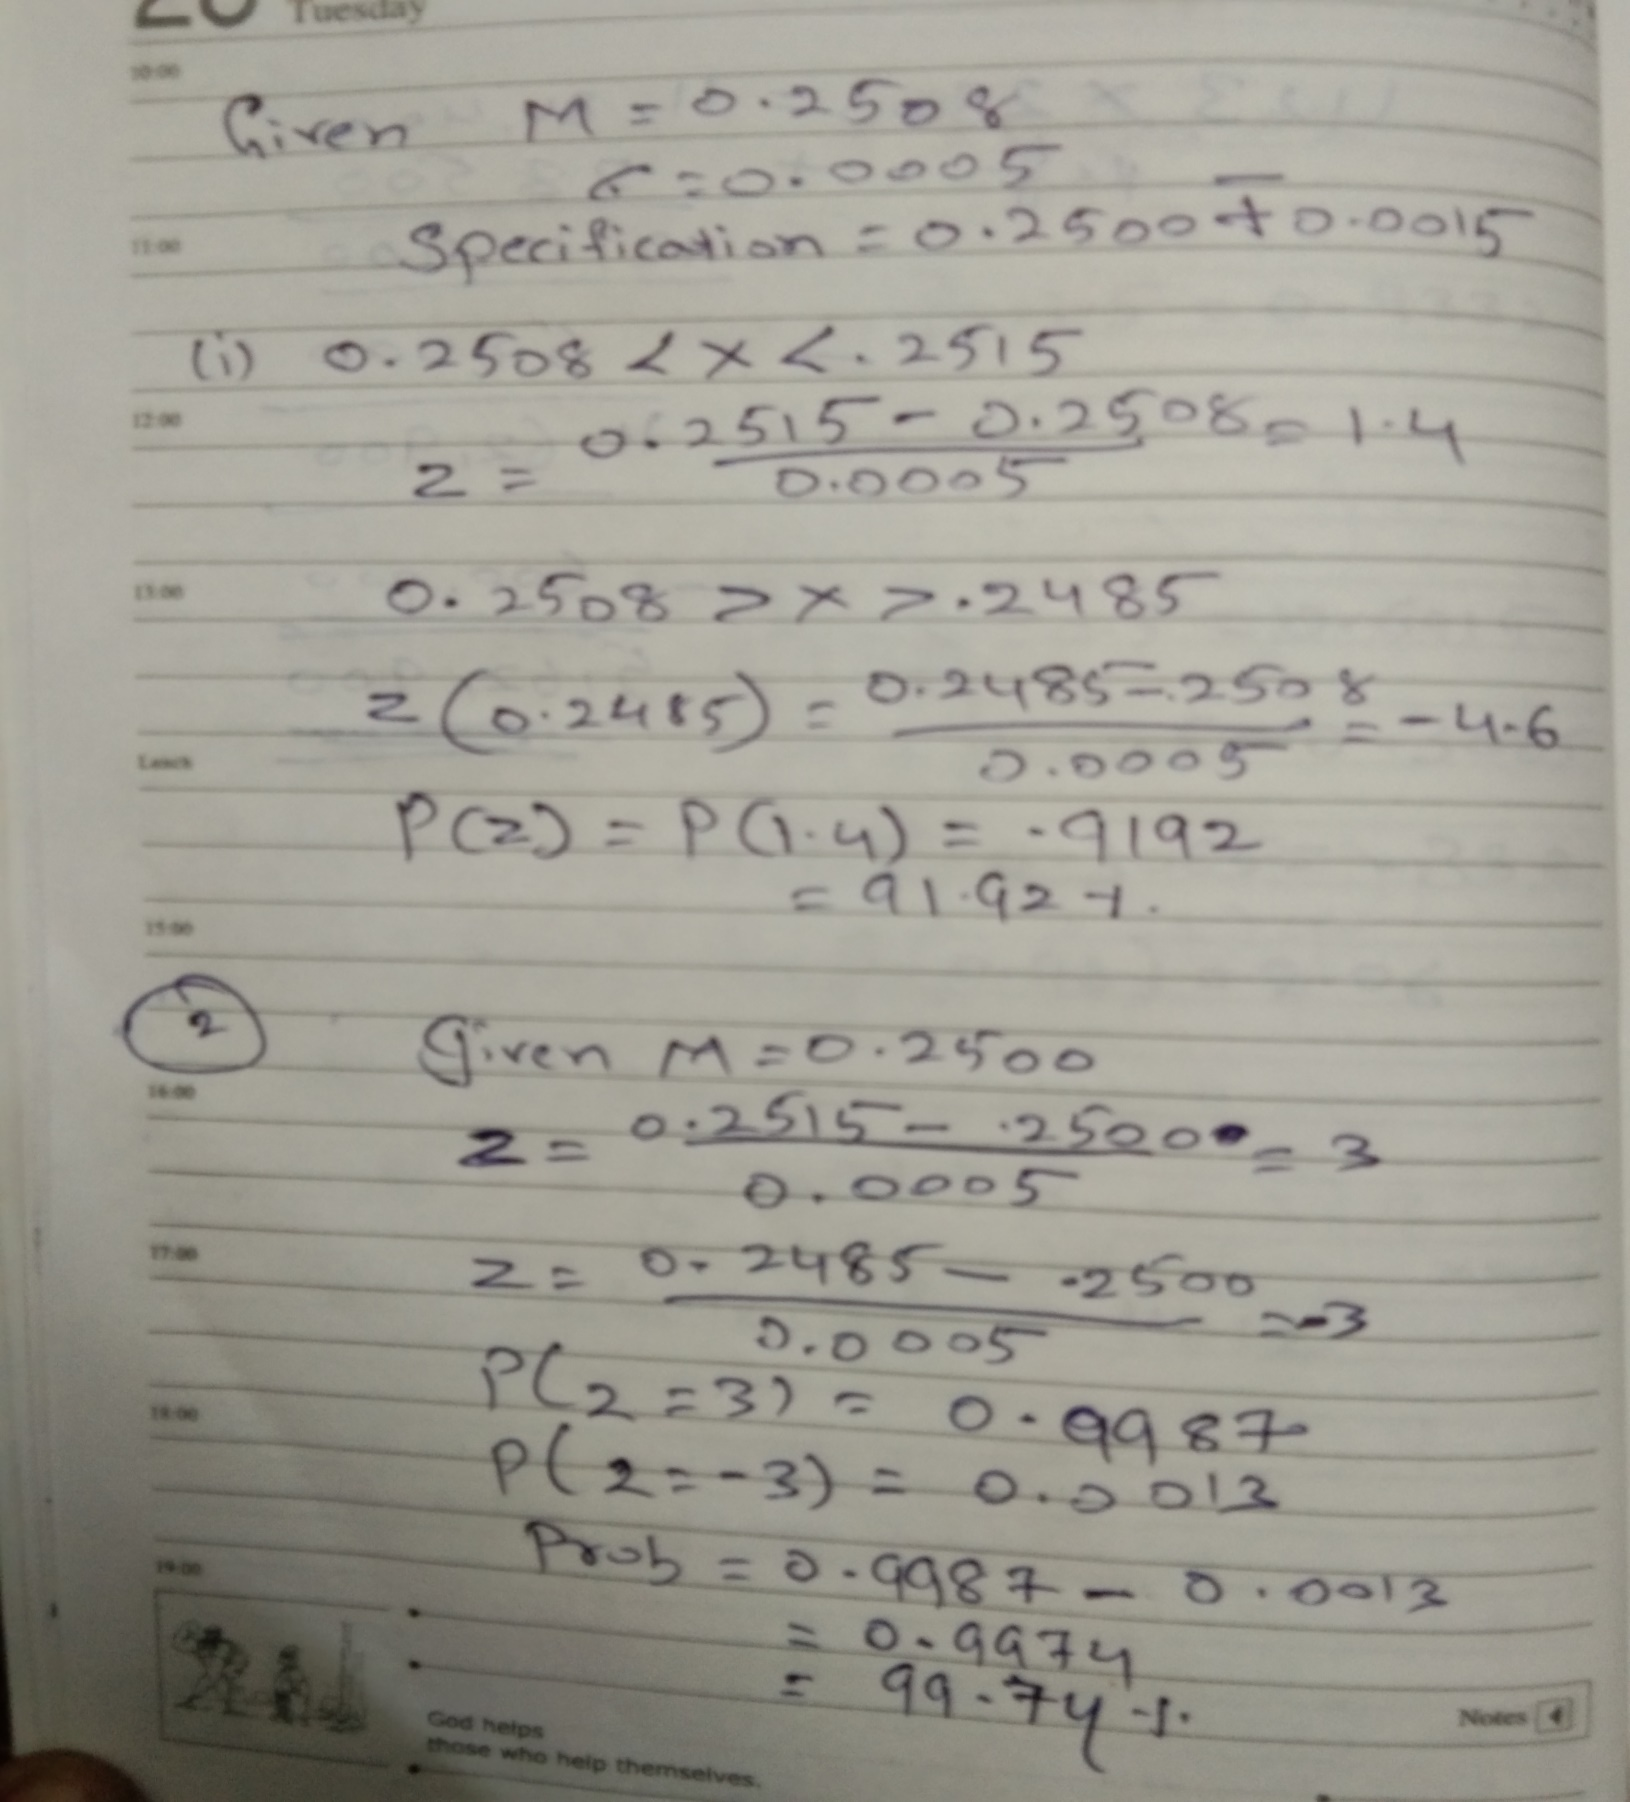 Tuesday
10:00
Given M = 0.2508
σ = 0.0005
11:00
Specification = 0.2500 ± 0.0015
(i) 0.2508 < x < .2515
12:00
z = 0.2515 - 0.2508 / 0.0005 = 1.4
13:00
0.2508 > x > .2485
z (0.2485) = 0.2485 - .2508 / 0.0005 = -4.6
Lunch
P(z) = P(1.4) = .9192
= 91.92 %.
15:00
2
Given M = 0.2500
16:00
z = 0.2515 - .2500 / 0.0005 = 3
17:00
z = 0.2485 - .2500 / 0.0005 = -3
P(z = 3) = 0.9987
18:00
P(z = -3) = 0.0013
Prob = 0.9987 - 0.0013
19:00
= 0.9974
= 99.74 %.
Notes 4
God helps
those who help themselves.